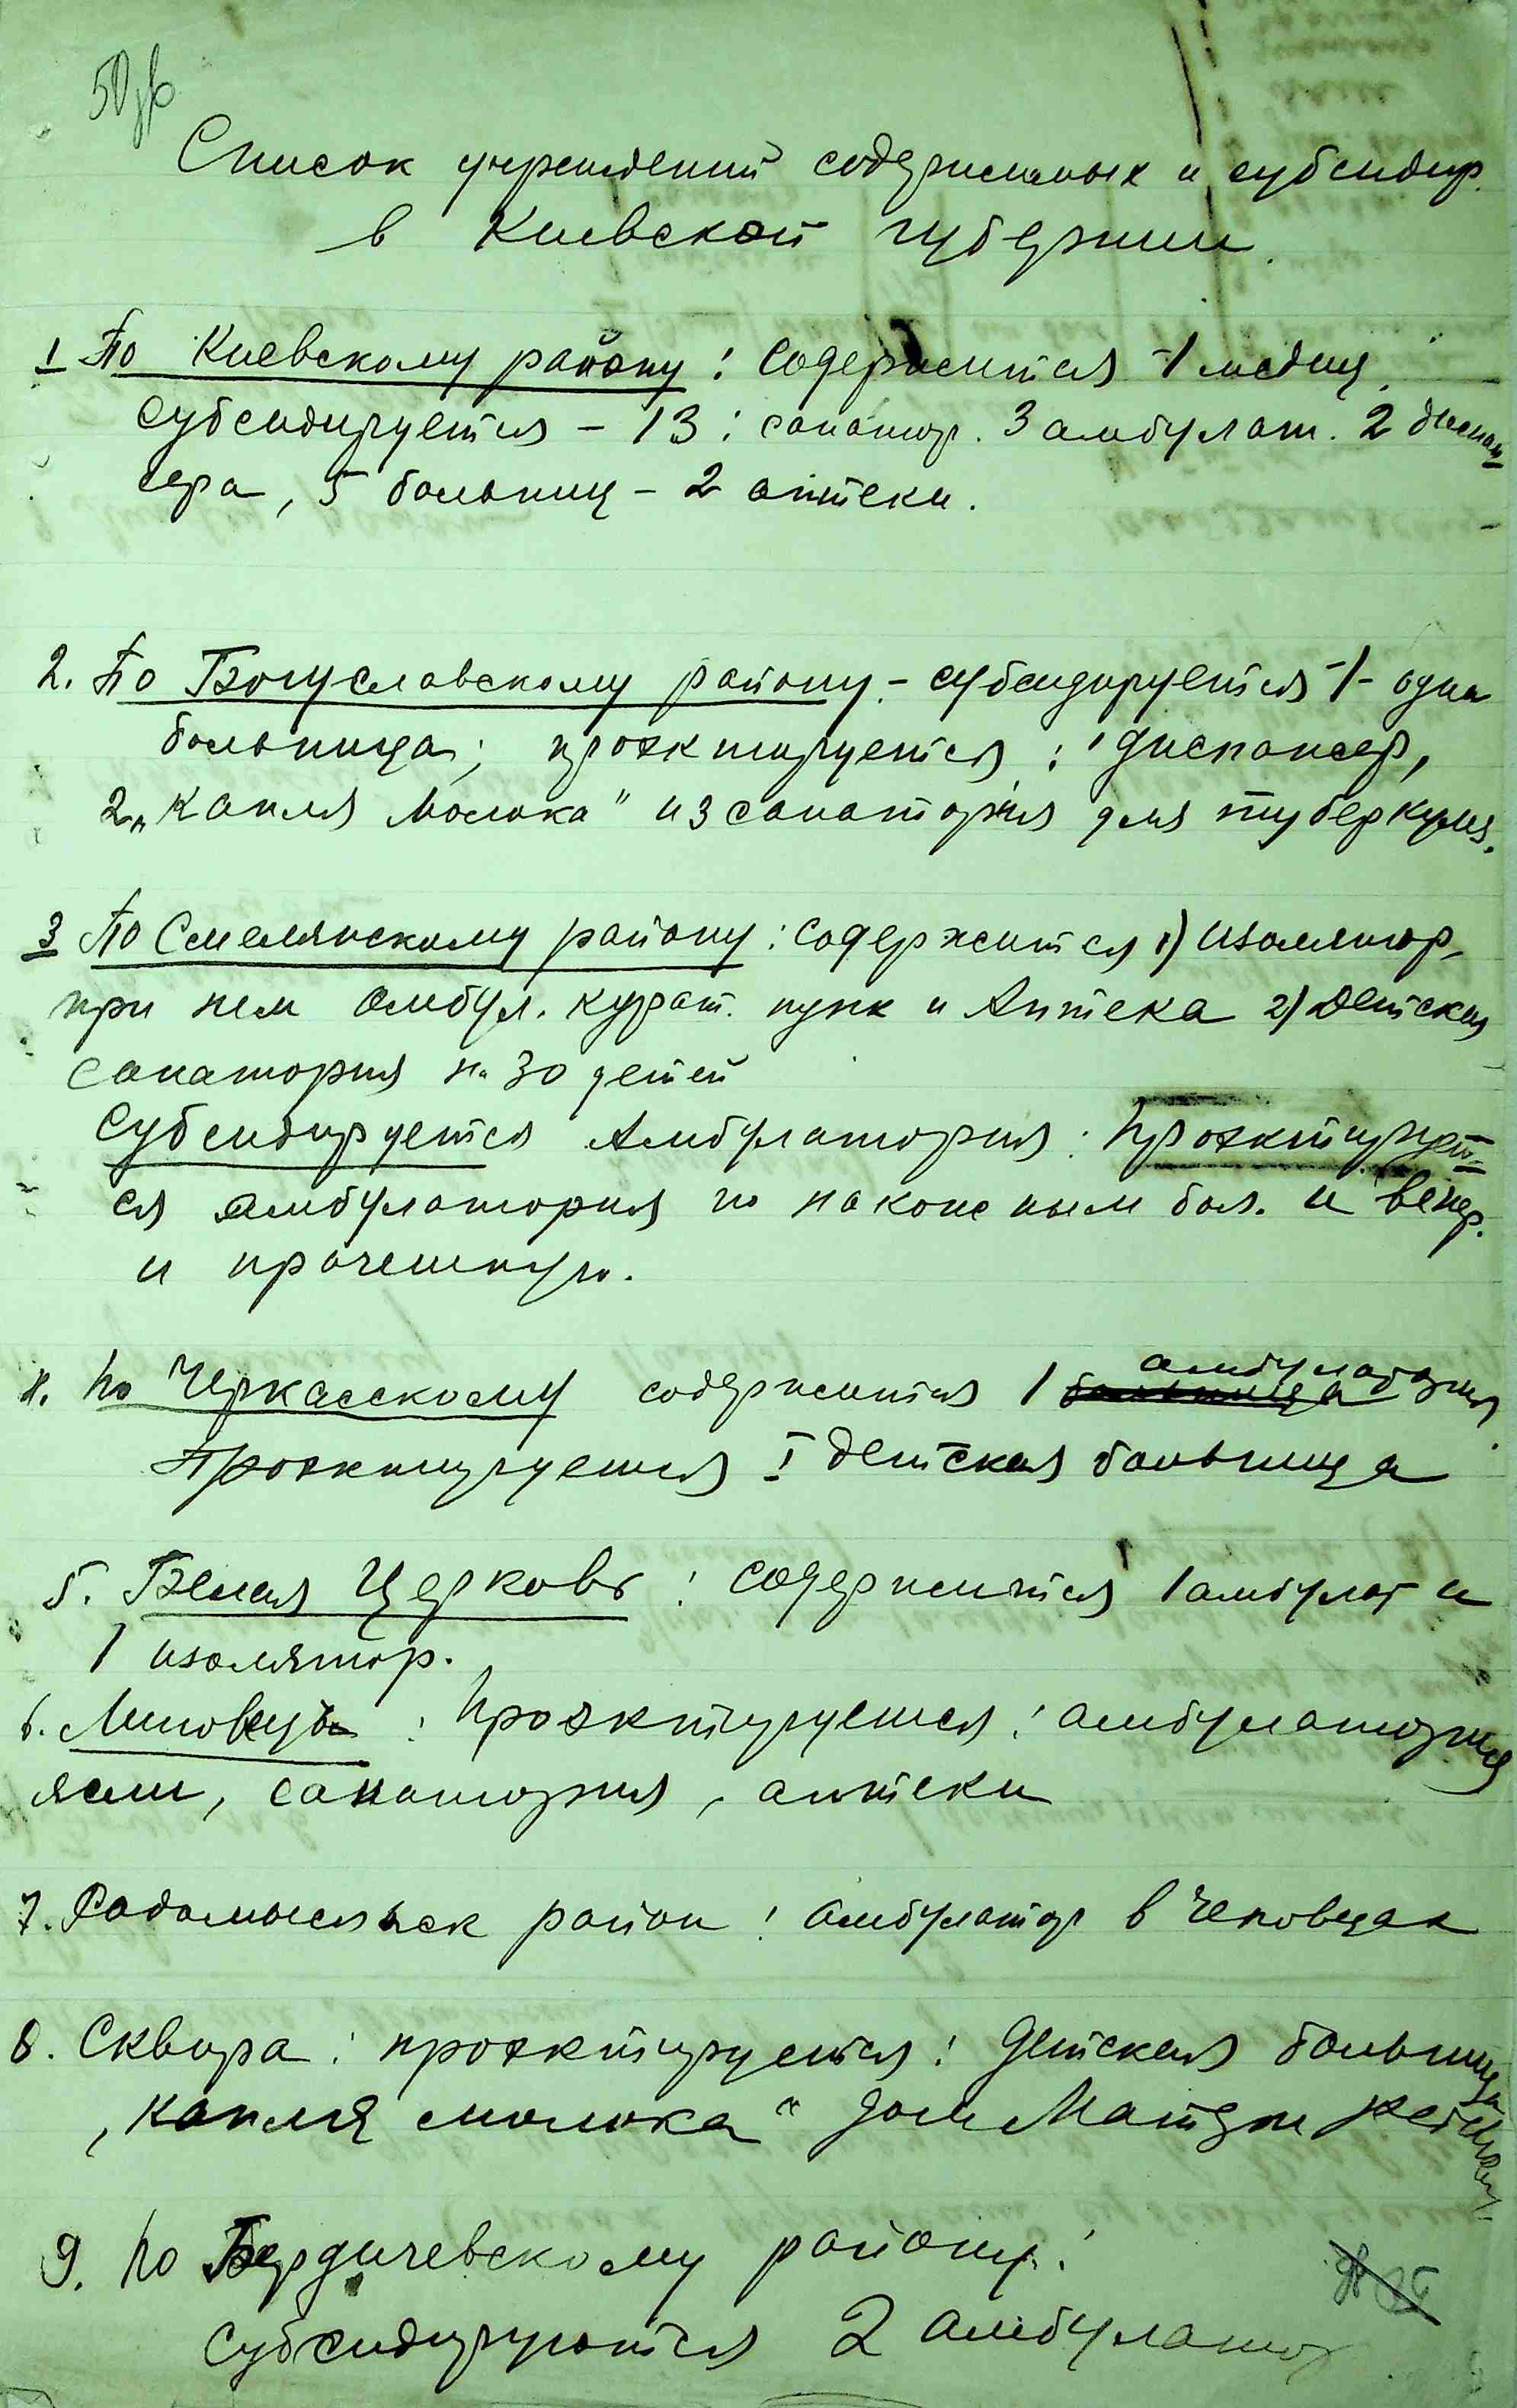 Список учреждений содержимых и субсидир.
в Киевской губернии.
1 По Киевскому району: содержится - 1 медиц.
субсидируется - 13: санатор. 3 амбулат. 2 диспан-
сера, 5 больниц - 2 аптеки.
2. По Богуславскому району - субсидируется - 1 - одна
больница; проэктируется: 1 диспансер,
2 „Капля Молока" и 3 санатория для туберкулез.
3 По Смелянскому району: содержится 1) изолятор,
при нем амбул. курат. пунк и Аптека 2) Детская
санатория на 30 детей
Субсидируется Амбулатория: Проэктирует-
ся амбулатория по накожным бол. и венер.
и прачешную.
4. По Черкасскому содержится 1 амбулатория,
Проэктируется I детская больница
5. Белая Церковь: содержится 1 амбулат и
1 изолятор.
6. : Проэктируется: амбулатория
ясли, санатория, аптеки
7. Радомысльск район: амбулатор в Чеповцах
8. Сквира: проэктируется: Детская больница
„Капля молока" дом Матери
9. По Бердичевскому району:
субсидируются 2 амбулатор